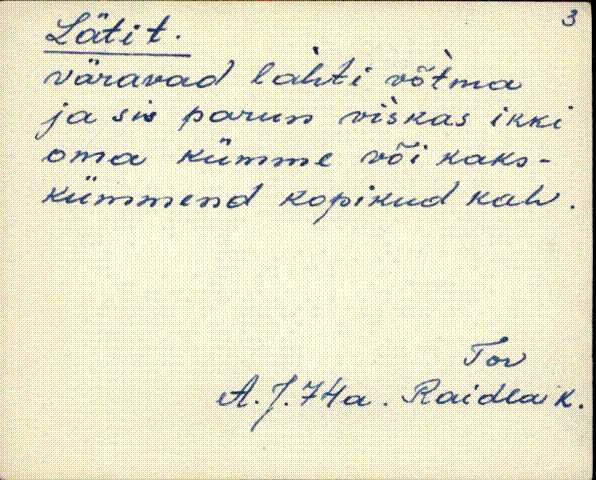 3
Lätit.
väravad làhti võ̀tma
ja sis parun vìskas ikki
oma kümme või kaks-
kümmend kopikud kah.
Tor
A. J. 74a. Raidla k.